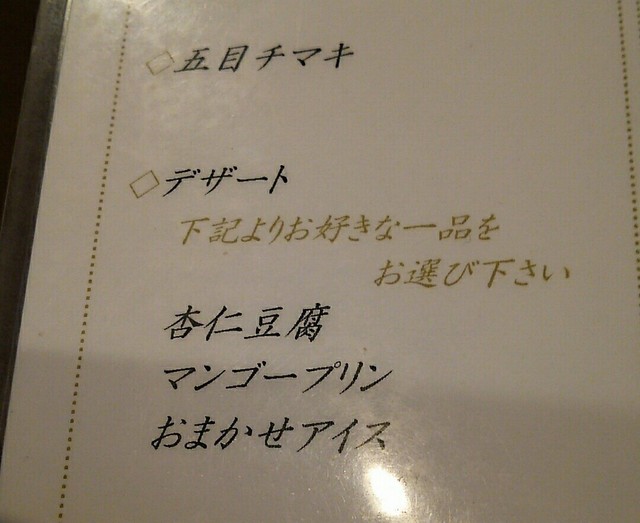 ◇五目チマキ
◇デザート
下記よりお好きな一品を
お選び下さい
杏仁豆腐
マンゴープリン
おまかせアイス